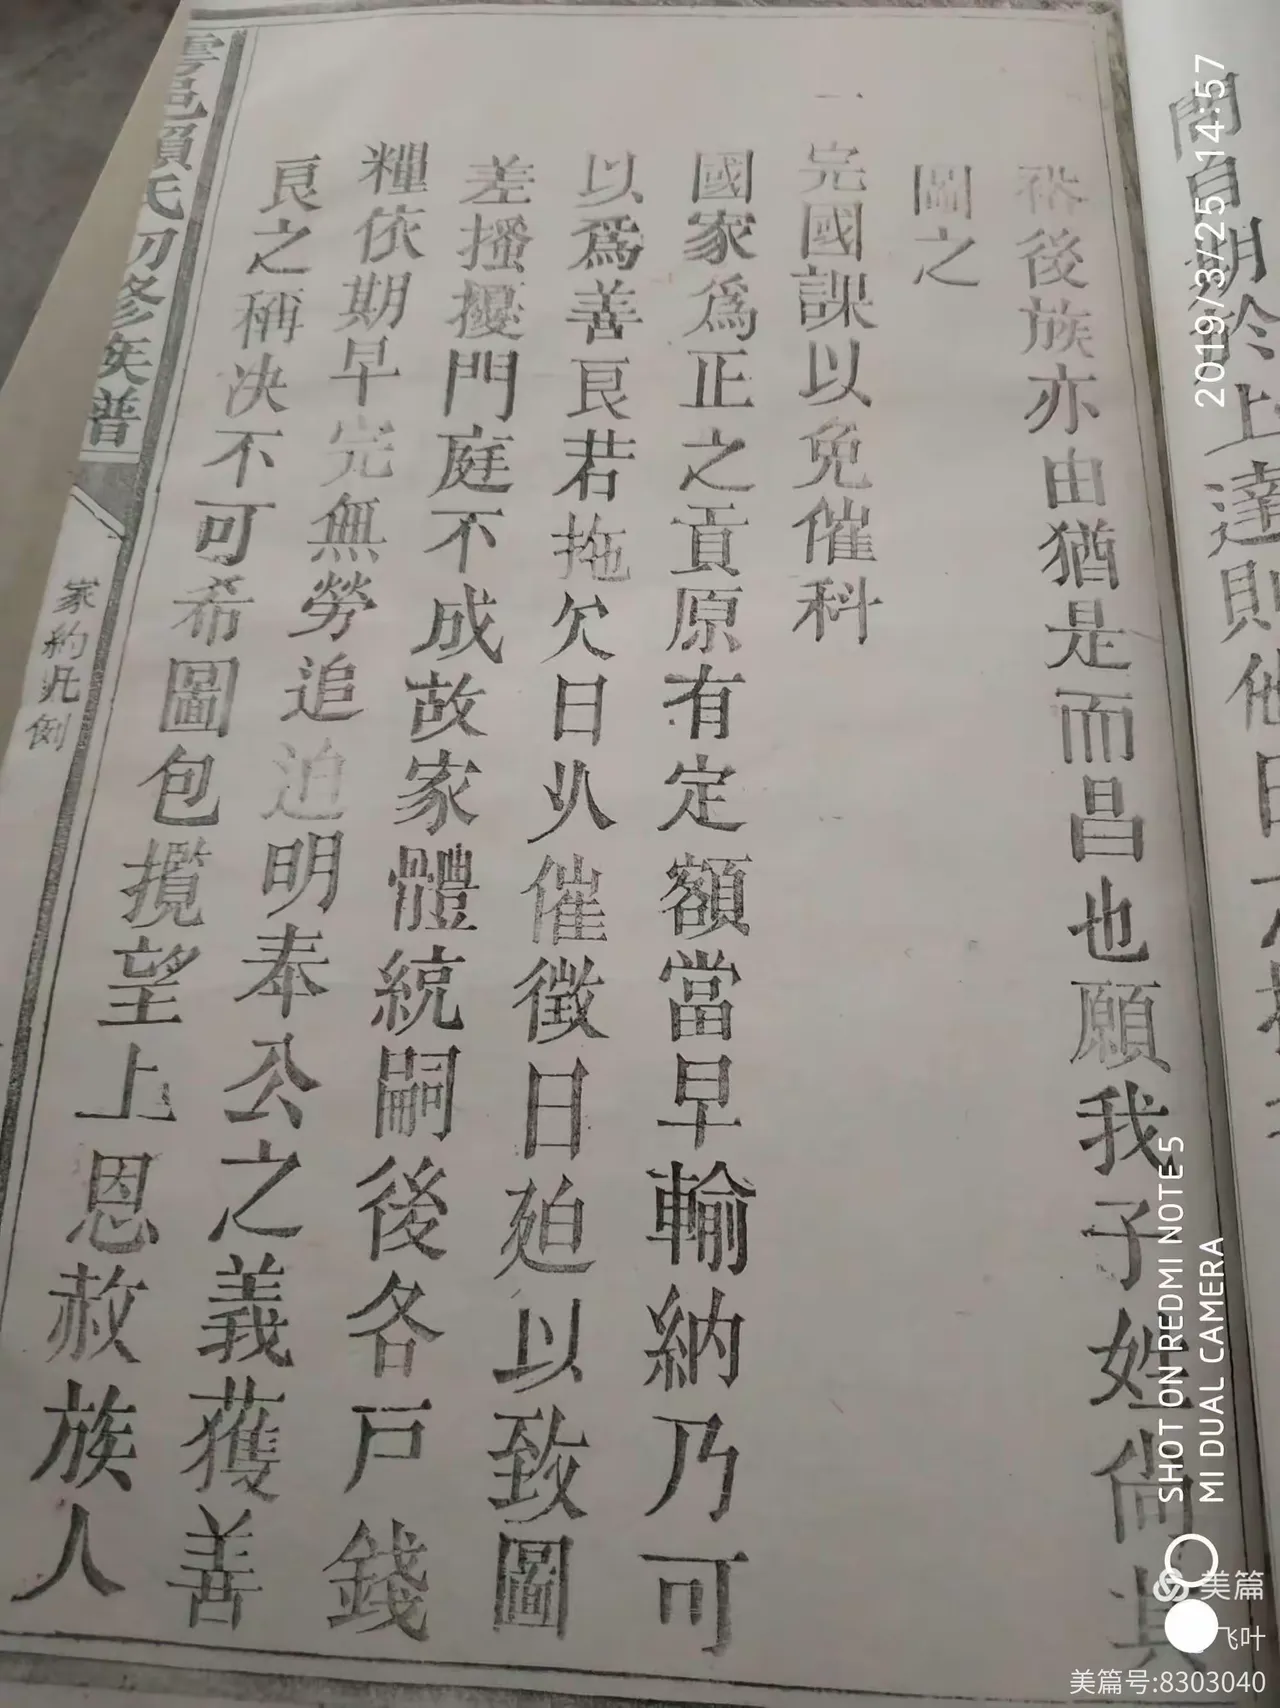 裕後族亦由猶是而昌也願我子姓尚其
圖之
一完國課以免催科
國家為正之貢原有定額當早輸納乃可
以爲善良若拖欠日久催徵日廹以致圖
差搔擾門庭不成故家體統嗣後各戸錢
糧依期早完無勞追迫明奉公之義獲善
良之稱决不可希圖包攬望上恩赦族人
雲邑賴氏初修族譜
家約凡例
於上達則他日
2019/3/25 14:57
SHOT ON REDMI NOTE 5
MI DUAL CAMERA
美篇
飞叶
美篇号:8303040